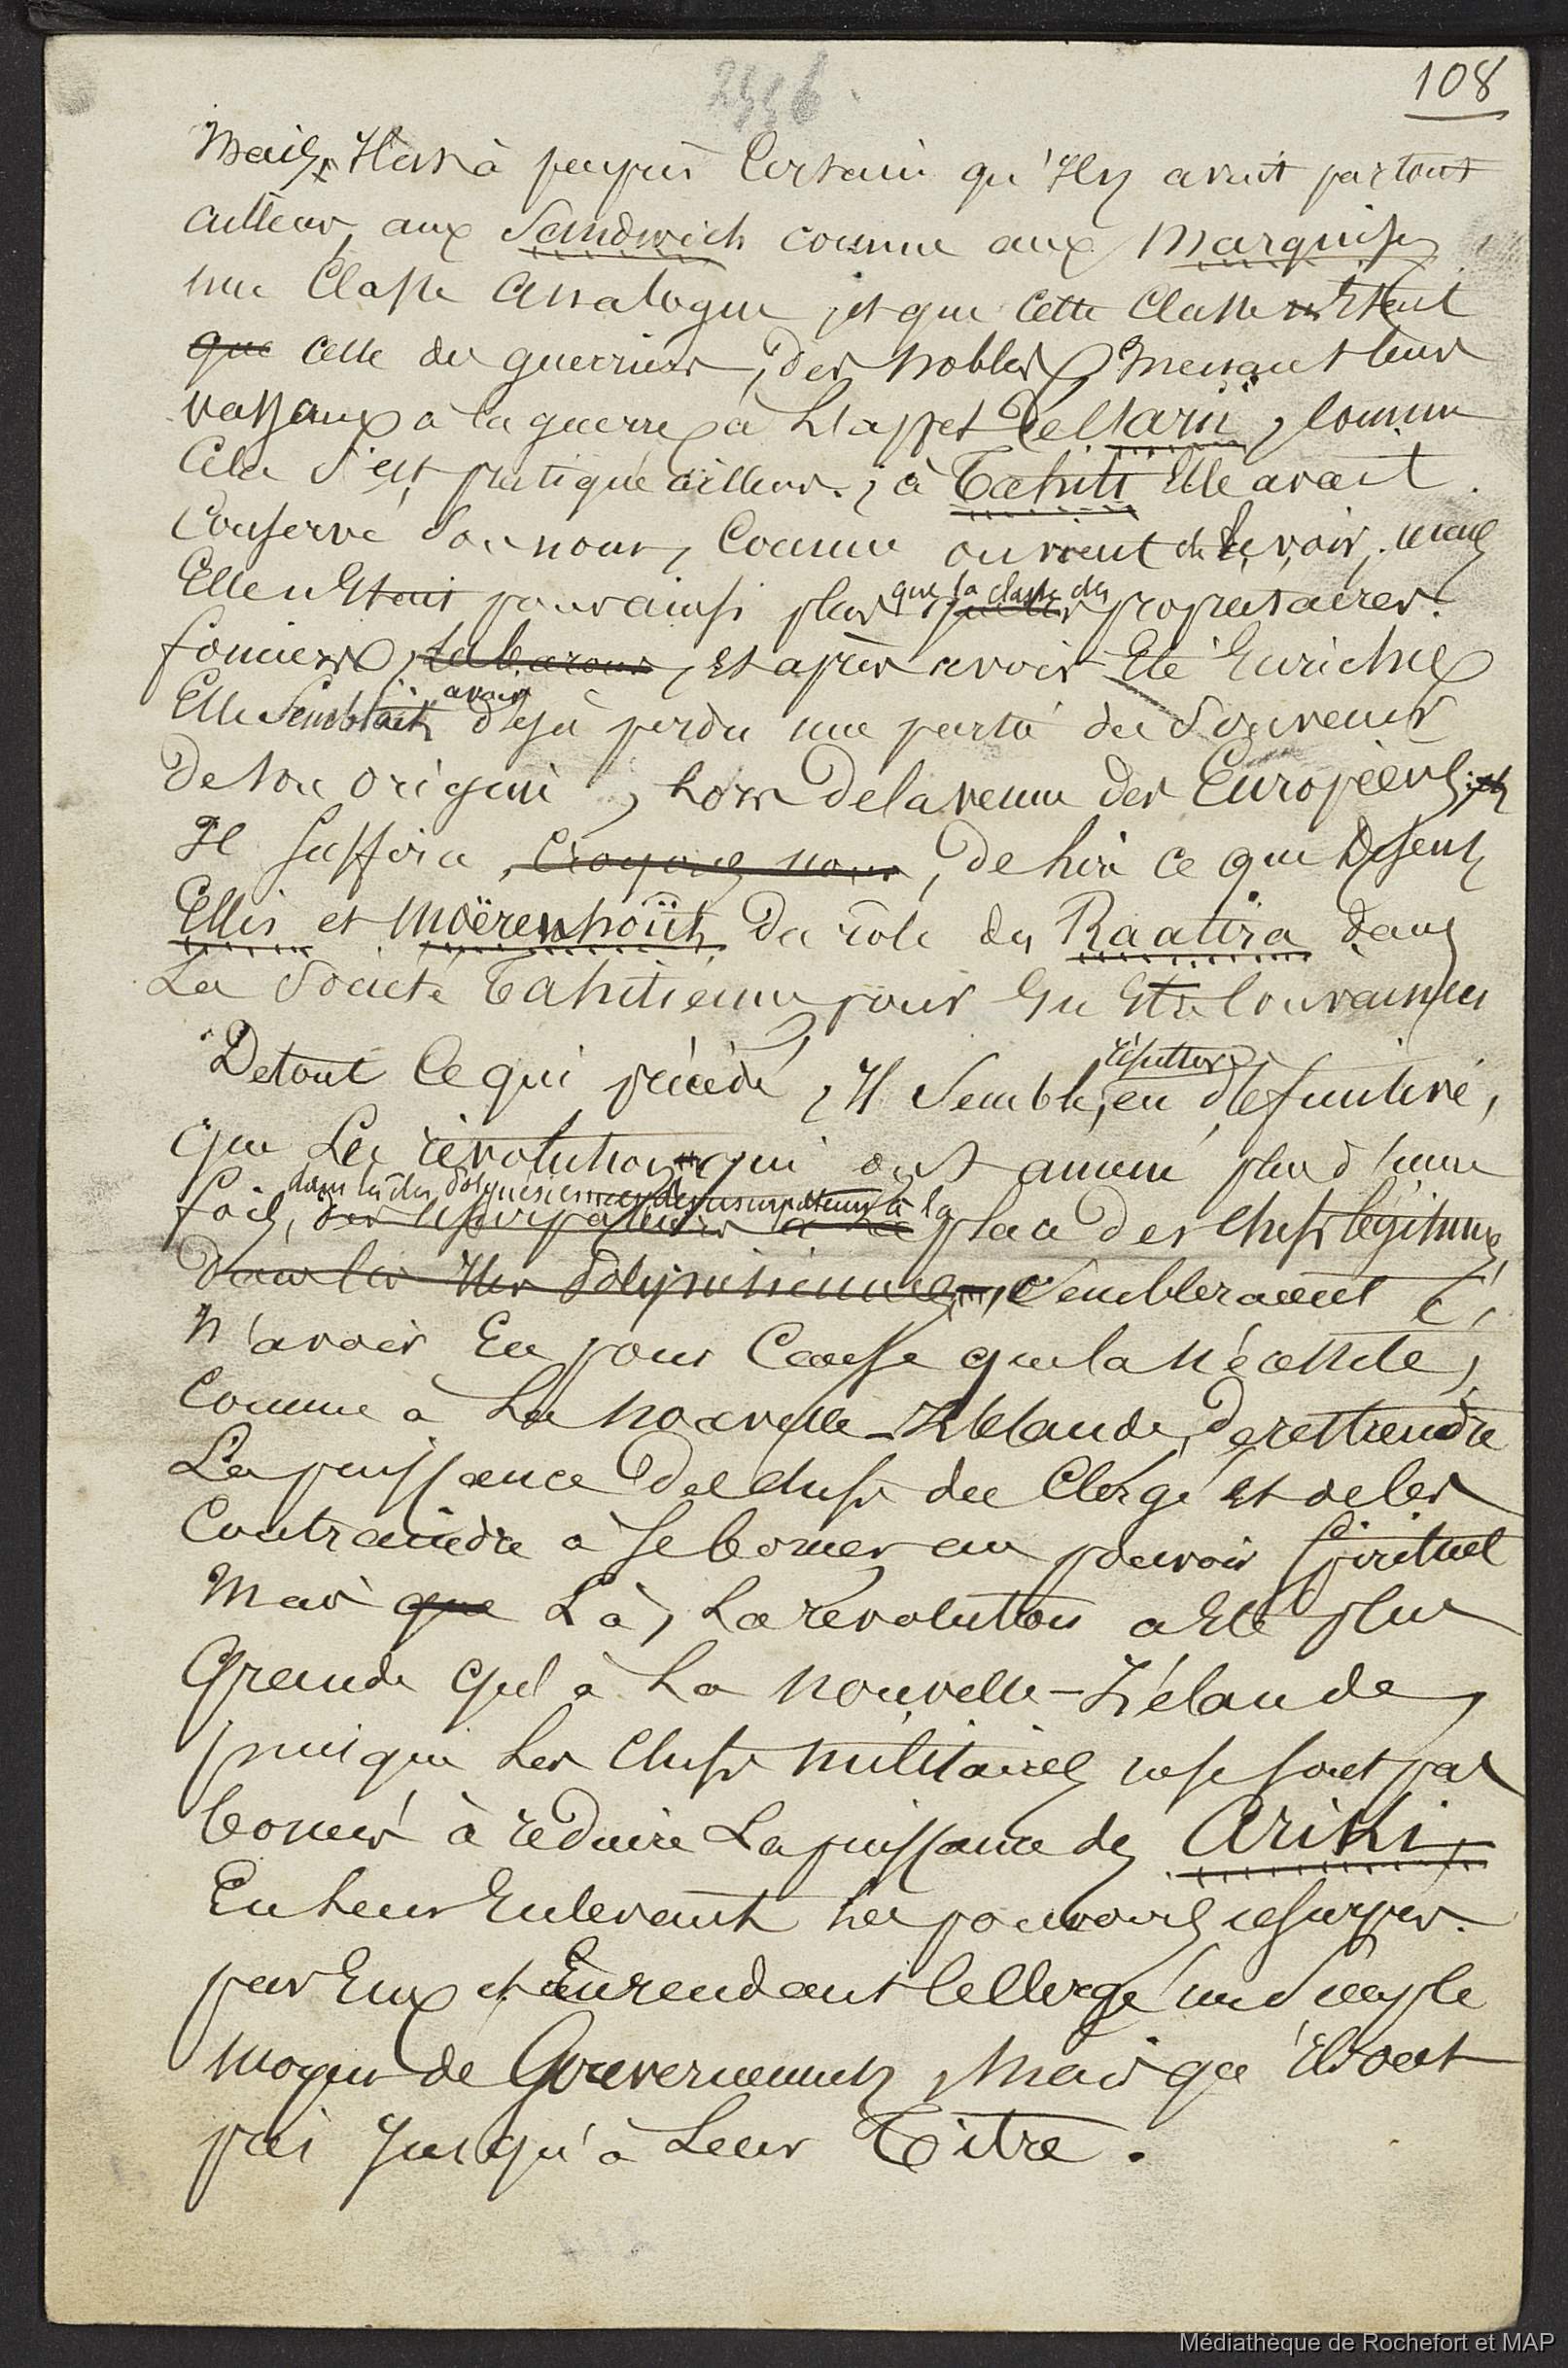 2556
108
Mais, il est à peu près certain qu'il y avait partout
ailleurs, aux Sandwich comme aux Marquises
une classe analogue, et que cette classe était
que celle des guerriers, des nobles menant leurs
vassaux à la guerre à l'appel des arii, comme
cela s'est pratiqué ailleurs ; à Tahiti elle avait
conservé son nom, comme on vient de le voir, mais
elle n'était pour ainsi plus que la classe des propriétaires
fonciers, et après avoir été enrichie
Elle semblait avoir déjà perdu une partie du souvenir
de son origine, lors de la venue des Européens ;
Il suffira croyons nous, de lire ce que disent
Ellis et Moërenhoüt du rôle des Raatira dans
La Société Tahitienne pour en être convaincu
De tout ce qui précède, il semble résulter, en définitive,
que les révolutions qui ont amené plus d'une
dans les îles Polynésiennes des usurpateurs à la
fois, des usurpateurs à la place des chefs légitimes,
dans les îles Polynésiennes, sembleraient
n'avoir eu pour cause que la nécessité,
comme à la Nouvelle-Zélande, de restreindre
La puissance des chefs du clergé et de les
contraindre à se borner au pouvoir spirituel
Mais que là, la révolution a été plus
grande qu'à la Nouvelle-Zélande,
puisque les chefs militaires ne se sont pas
bornés à réduire la puissance des Ariki,
En leur enlevant les pouvoirs usurpés
par eux et en rendant le clergé un simple
moyen de Gouvernement, mais qu'ils ont
pris jusqu'à leur Titre.
Médiathèque de Rochefort et MAP